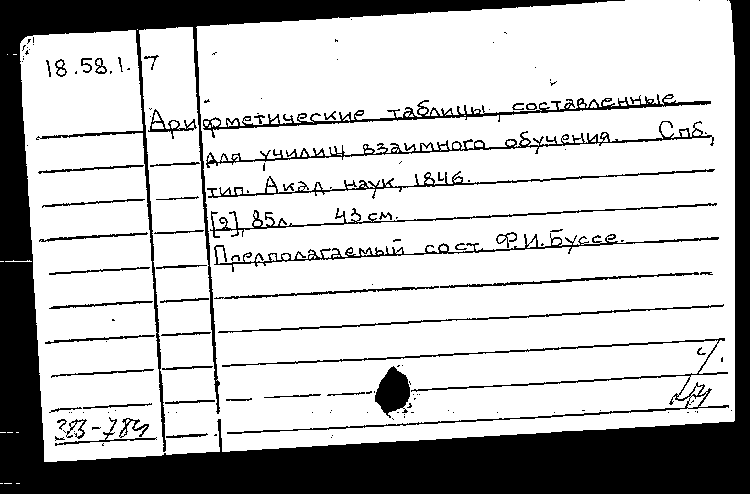 18.58.1.7
Арифметические таблицы, составленные
для училищ взаимного обучения. Спб.,
тип. Акад. наук, 1846.
[2], 85л. 43 см.
Предполагаемый сост. Ф.И. Буссе.
ч/.